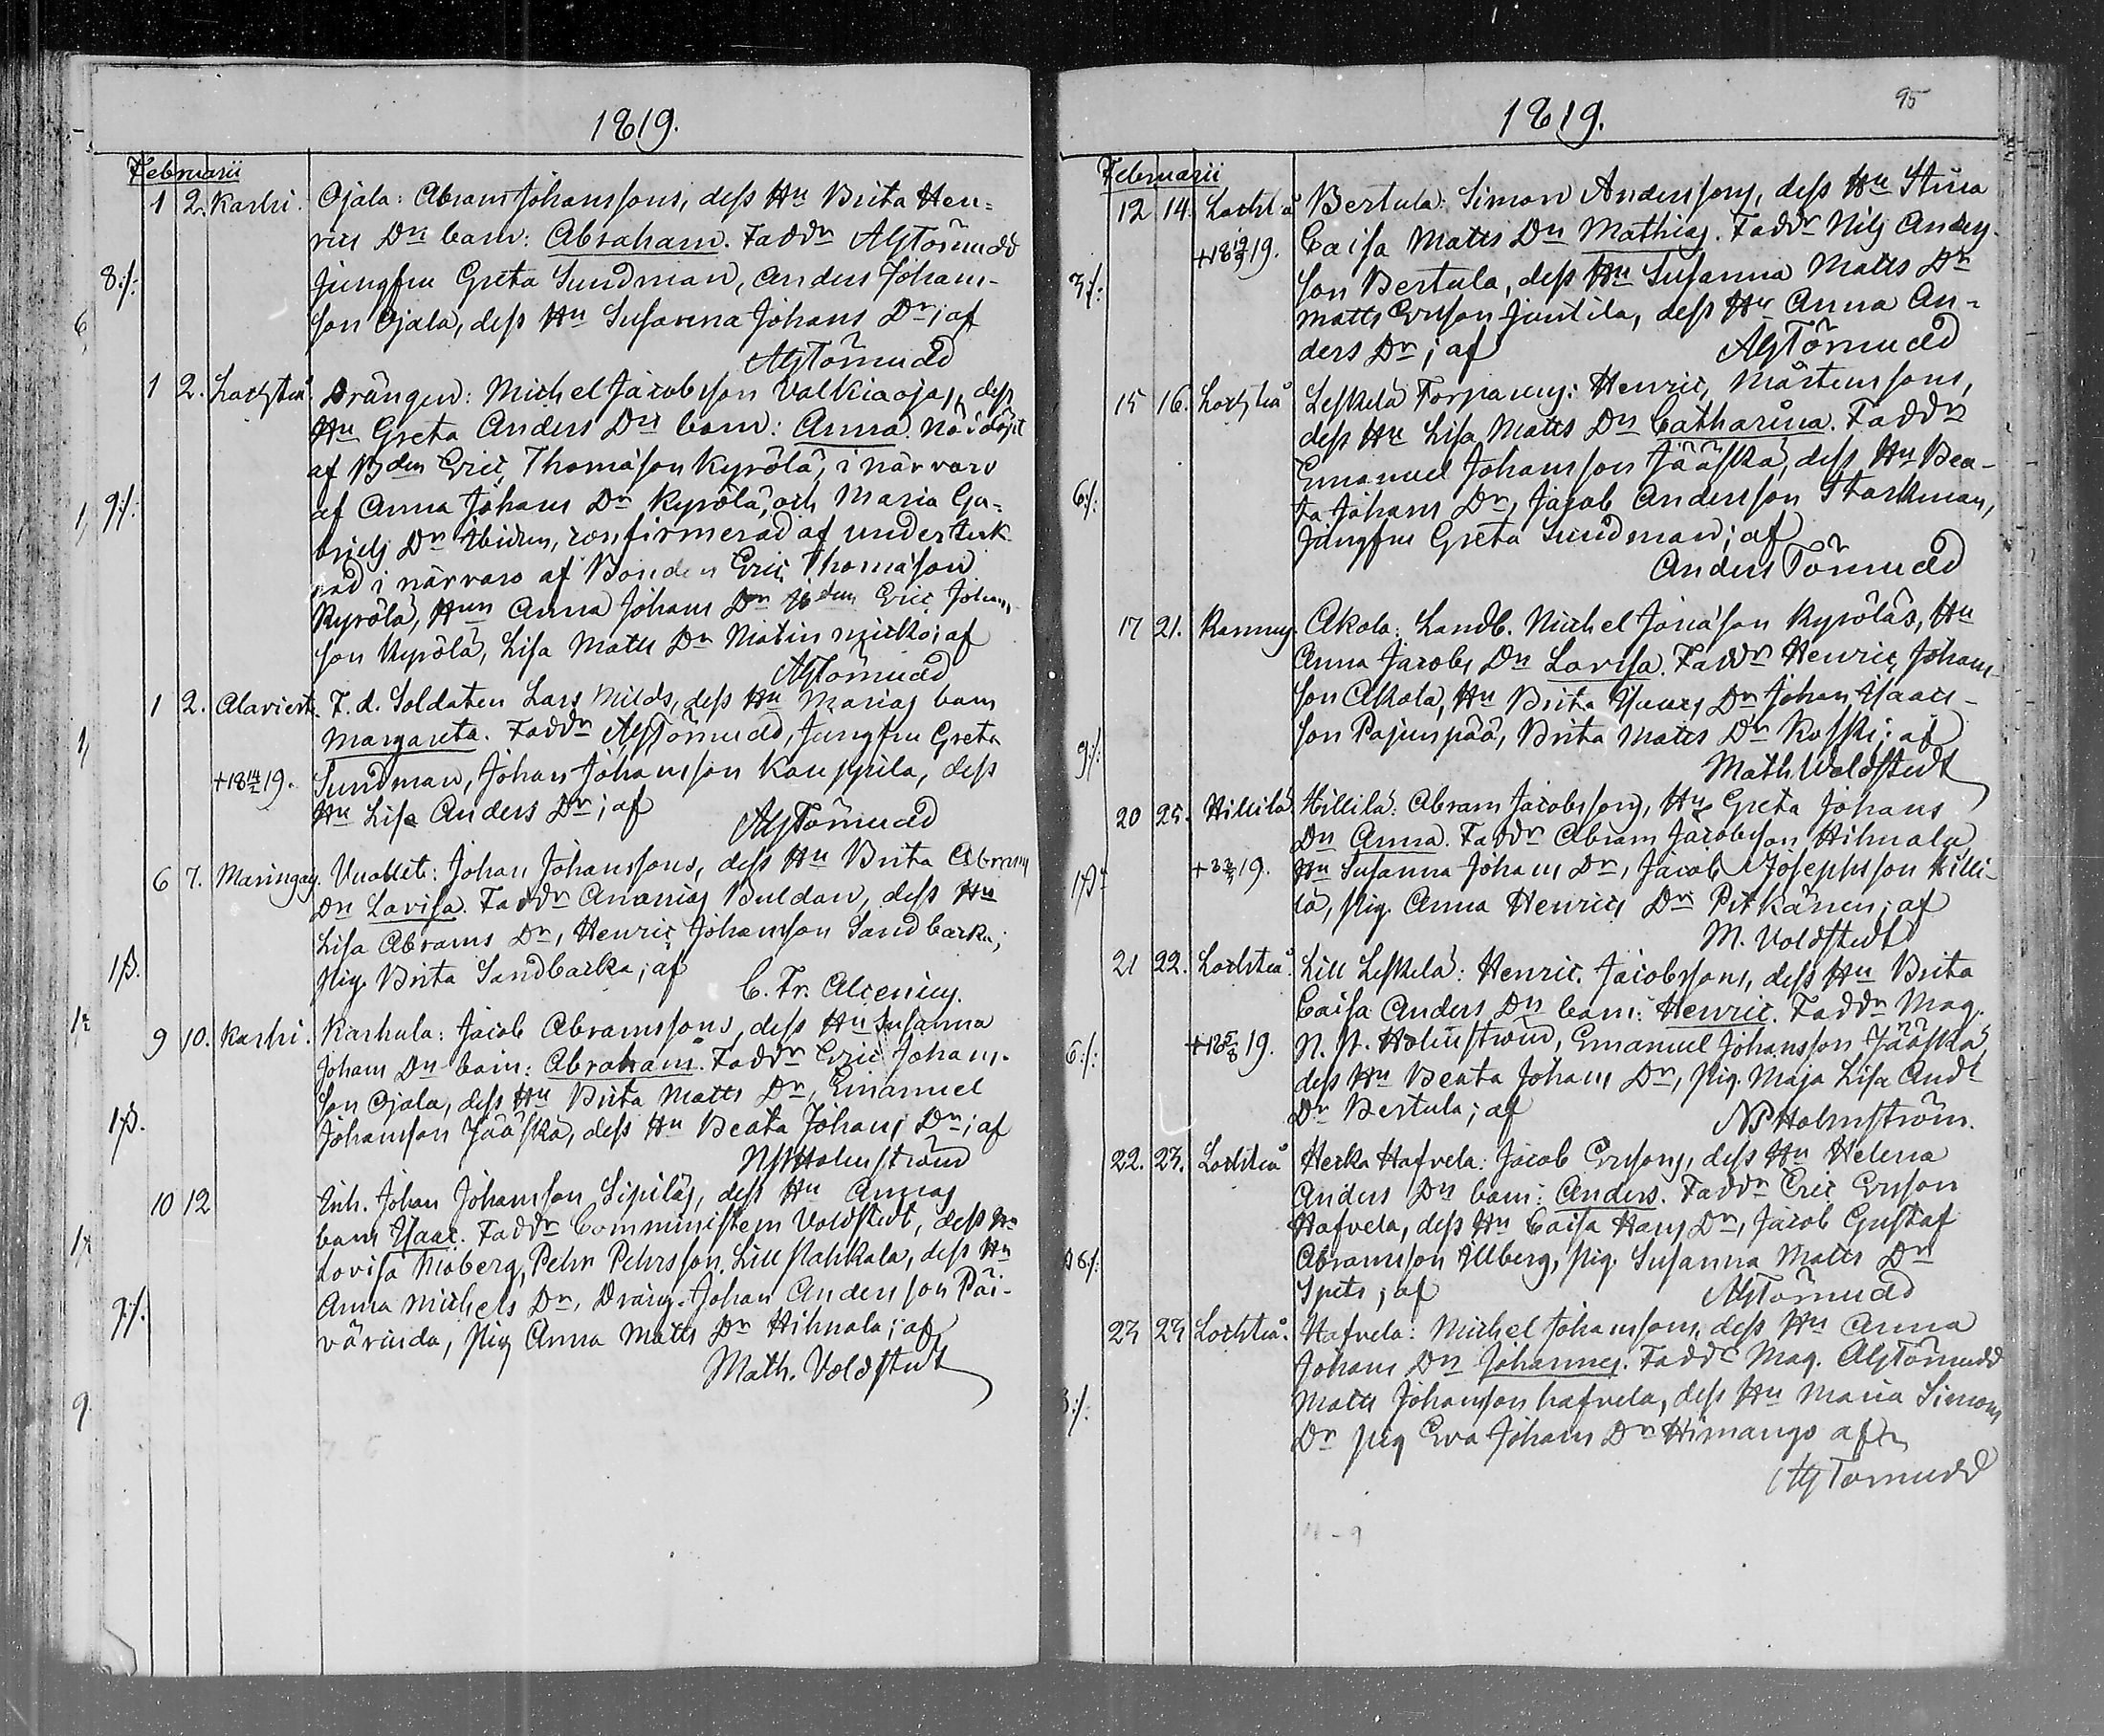 1819.
Februarii
1 2. Karhi. Ojala: Abram Johanssons, dess Hu Brita Hen=
rics Drs barn: Abraham. Faddr AGTörnudd
8:/: Jungfru Greta Sundman, Anders Johans-
son Ojala, dess Hu Susanna Johans Dr; af
AGTörnudd
1 2. Lochteå. Drängen: Michel Jacobsson Valkiaojas, dess
Hu Greta Anders Drs barn: Anna. Nöddöpt
af Bden Eric Thomasson Kyrölä, i närvaro
af Anna Johans Dr Kyrölä, och Maria Ga=
9:/: briels Dr Ibidem, confirmerad af underteck-
nad i närvaro af Bonden Eric Thomasson
Kyrölä, Hun Anna Johans Dr Eric Johans
son Kyrölä, Lisa Matts Dr; af
AGTörnudd
1 2. Alaviert. F. d. Soldaten Lars Milds, dess Hu Marias barn
Margareta. Faddr AGTörnudd, Jungfru Greta
+18 14/2 19. Sundman, Johan Johansson Kauppila, dess
Hu Lisa Anders Dr; af
AGTörnudd
6 7. Maringays. Vuollet: Johan Johanssons, dess Hu Brita Abrams
Drs Lovisa. Faddr Ananias Buldan, dess Hu
Lisa Abrams Dr, Henric Johansson Sandbacka;
Pig. Brita Sandbacka; af
C. Fr. Alcenius.
9 10. Karhi. Karhula: Jacob Abramssons, dess Hu Susanna
Johans Drs barn: Abraham. Faddr Eric Johans-
son Ojala, dess Hu Brita Matts Dr, Emanuel
Johansson Jääskä, dess Hu Beata Johans Dr; af
NPHolmström
10 12 Inh. Johan Johansson Sipiläs, dess Hu Annas
barn Isaac. Faddr Comministern Voldstedt, dess Hu
Lovisa Moberg, Pehr Pehrsson Lill Pahkala, dess Hu
Anna Michels Dr, Dräng. Johan Andersson Päi-
9:/: värinda, Pig Anna Matts Dr Hihnala; af
Math. Voldstedt
95
1819.
Februarii
12 14. Lochteå Bertula: Simon Anderssons, dess Hu Stina
+18 19. Caisa Matts Drs Mathias. Faddr Nils Anders-
3:/: son Bertula, dess Hu Susanna Matts Dr
Matts Ersson Juntila, dess Hu Anna An-
ders Dr; af AGTörnudd
15 16. Lochteå Leskelä Torparens: Henric Mårtenssons,
dess Hu Lisa Matts Drs Catharina. Faddr
Emanuel Johansson Jääskä, dess Hu Bea-
6:/: ta Johans Dr, Jacob Andersson Starkman,
Jungfru Greta Sundman; af
Anders Törnudd
17 21. Rannus. Akola: Landb. Michel Jonasson Kyröläs, Hu
Anna Jacobs Drs Lovisa. Faddr Henric Johans-
son Akola, Hu Brita Isaacs Dr Johan Isaacs-
9:/: son Pajunpää, Brita Matts Dr Koski; af
Math Voldstedt
20 25. Hillilä. Hillilä: Abram Jacobssons, Hu Greta Johans
Drs Anna. Faddr Abram Jacobsson Hihnala
+ 3/3 19. Hu Susanna Johans Dr, Jacob Josephsson Hilli-
lä, Pig. Anna Henrics Dr Pitkänen; af
M. Voldstedt
21 22. Lochteå. Lill Leskelä: Henric Jacobssons, dess Hu Brita
Caisa Anders Drs barn: Henric. Faddr Mag.
6:/: +18 5/8 19. N. P. Holmström, Emanuel Johansson Jääskä
dess Hu Beata Johans Dr, Pig. Maja Lisa And:
Dr Bertula; af NPHolmström.
22. 23. Lochteå Herka Hafvela: Jacob Erssons, dess Hu Helena
Anders Drs barn: Anders. Faddr Eric Ersson
Hafvela, dess Hu Caisa Hans Dr, Jacob Gustaf
Abramsson Allberg, Pig. Susanna Matts Dr
Spets; af AGTörnudd
23 23 Lochteå. Hafvela: Michel Johanssons, dess Hu Anna
Johans Drs Johannes. Faddr Mag. AGTörnudd
Matts Johansson hafvela, dess Hu Maria Simons
Dr Pig Eva Johans Dr Himango af
AGTörnudd